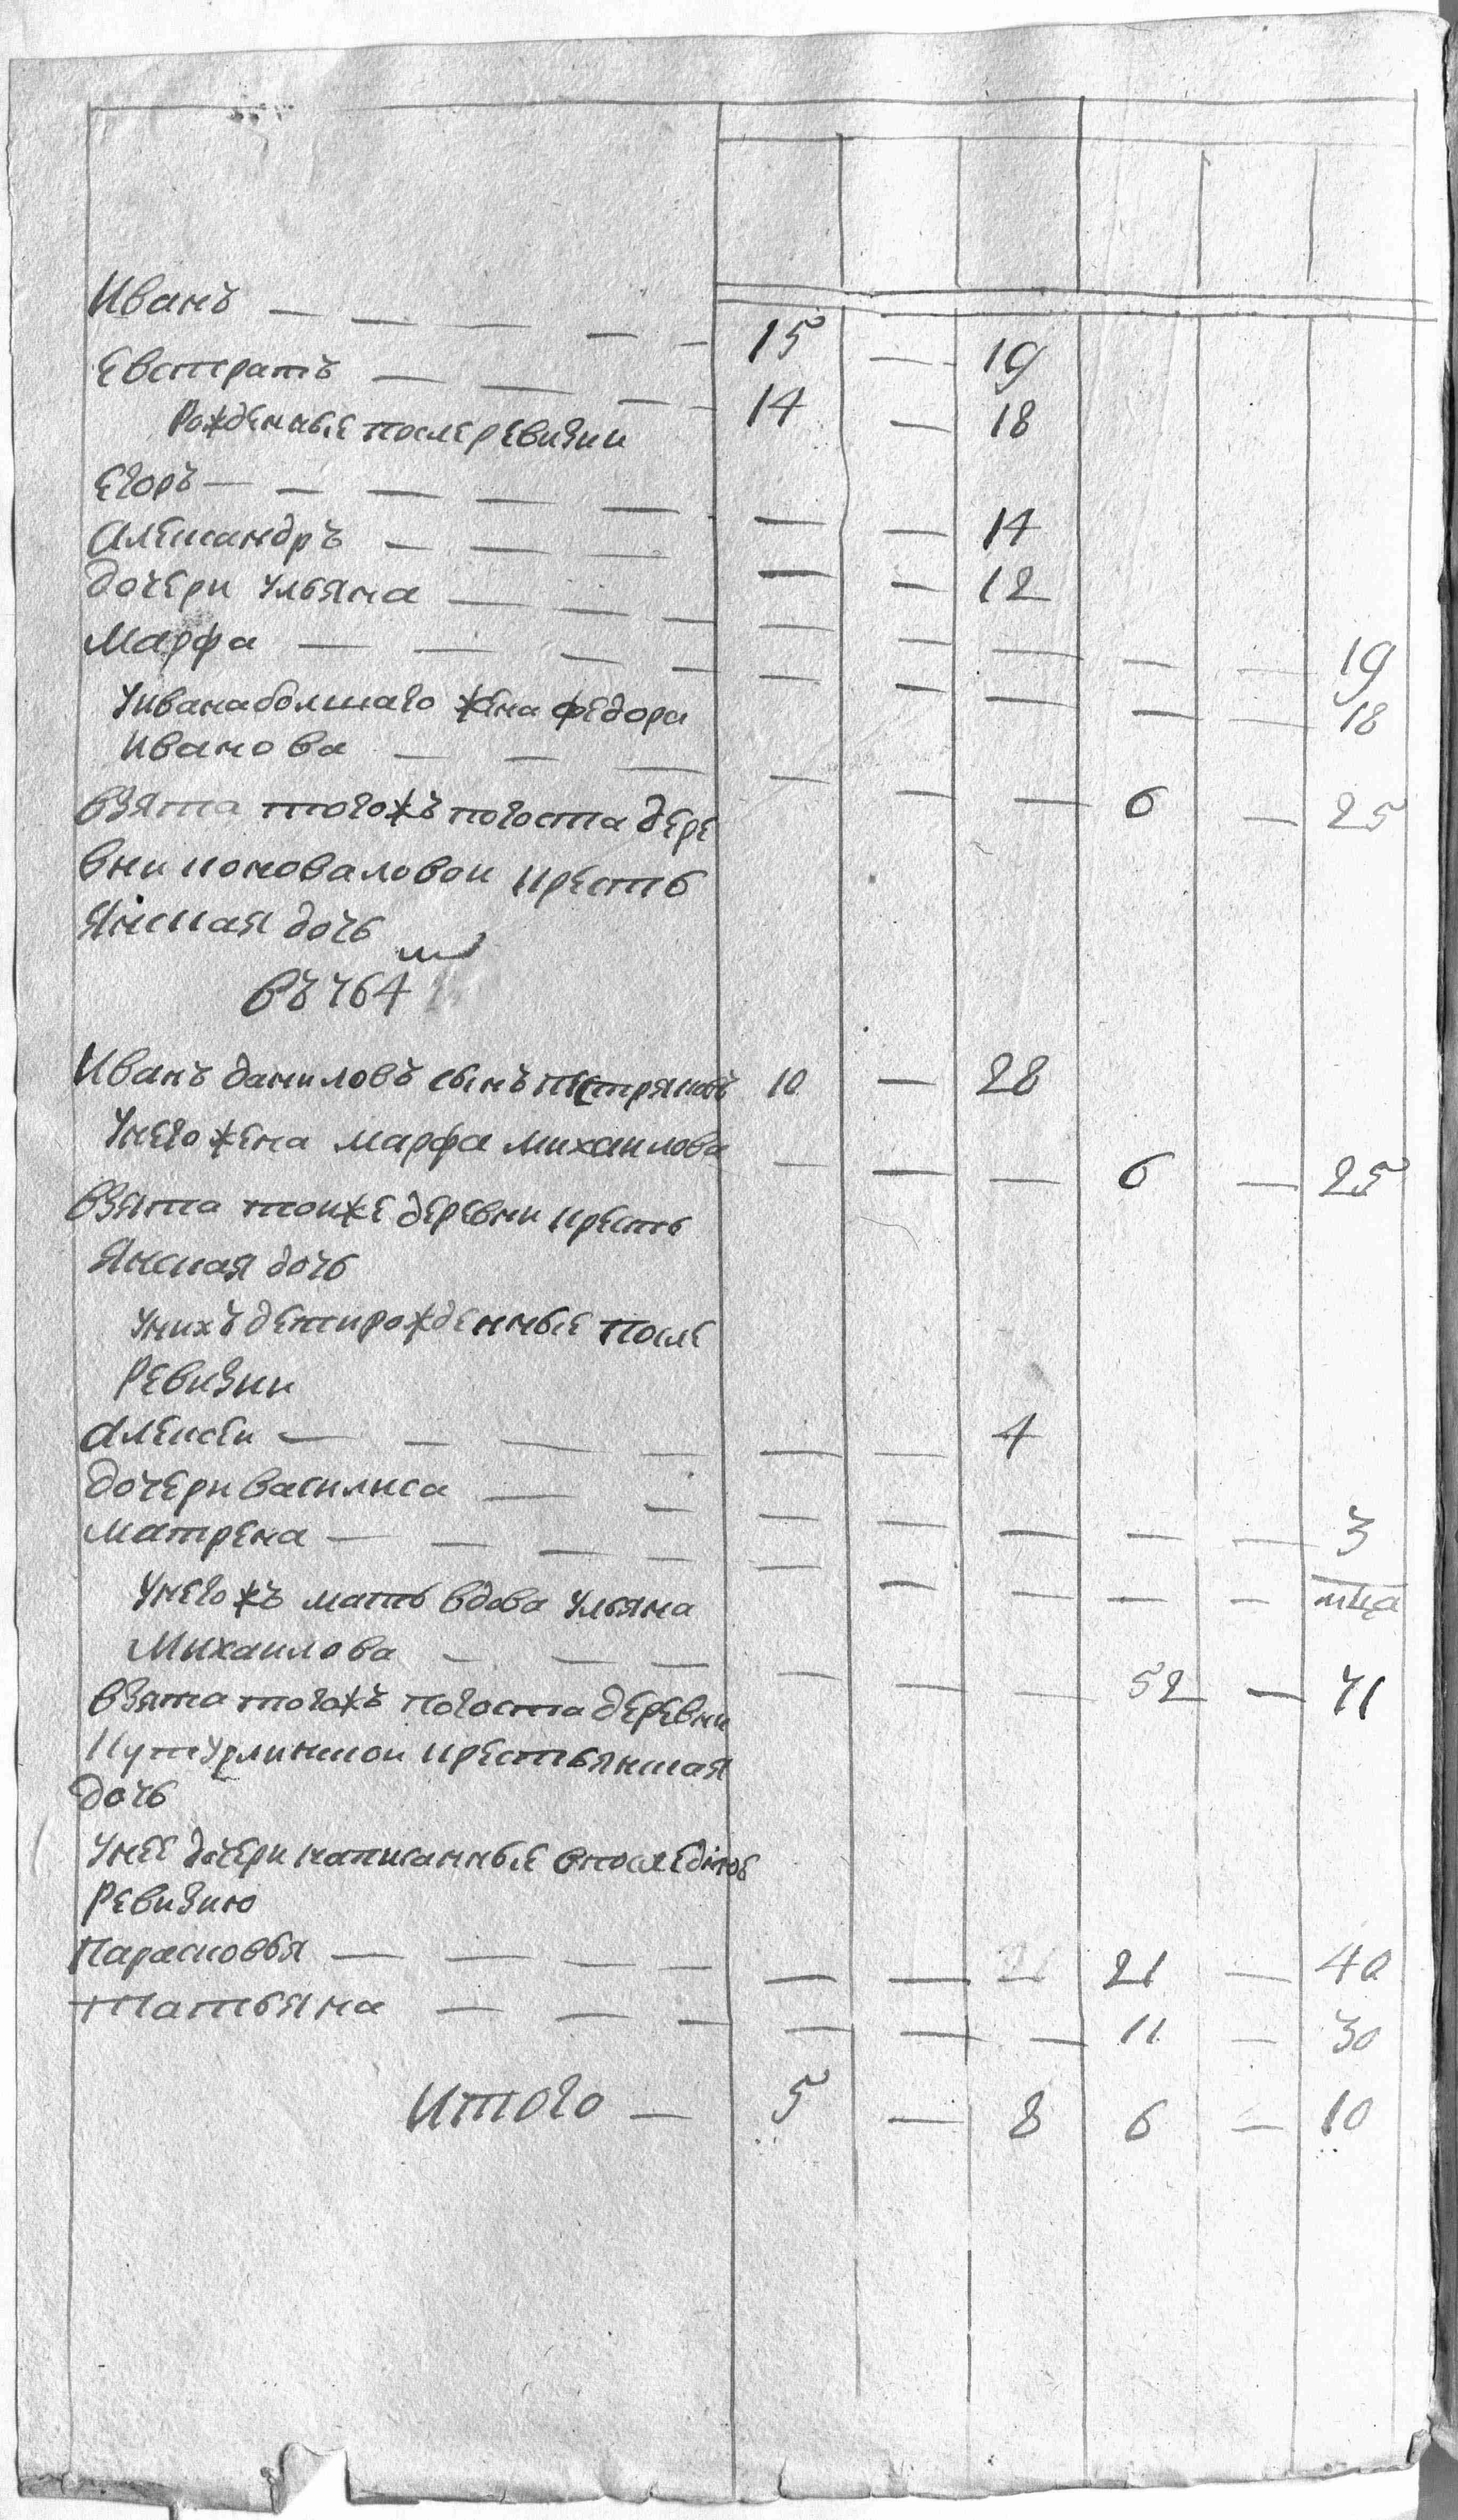 Иванъ — — — — — 15 — 19
Евстратъ — — — — 14 — 18
Рожденные после ревизии
Егоръ — — — — — — — 14
Александръ — — — — — 12
дочери Ульяна — — — — — — — — 19
Марфа — — — — — — — — — 18
У ивана болшаго жена федора
Иванова — — — — — — 6 — 25
взята тогожъ погоста дере
вни коноваловои кресть
янская дочь
въ 764 м
Иванъ даниловъ сынъ пестряковъ 10 — 28
У него жена марфа михаилова — — — 6 — 25
взята тоиже деревни кресть
янская дочь
У нихъ дети рожденные после
Ревизии
Алексеи — — — — — — 4
дочери василиса — — — — — — — 3
Матрена — — — — — — — — — мца
У него жъ мать вдова Ульяна
Михаилова — — — — — — 52 — 71
взята тогожъ погоста деревни
крестьянская
дочь
У нее дочери написанные в последнюю
Ревизию
Парасковья — — — — — — 21 21 — 40
татьяна — — — — — — 11 — 30
Итого — 5 — 8 6 — 10